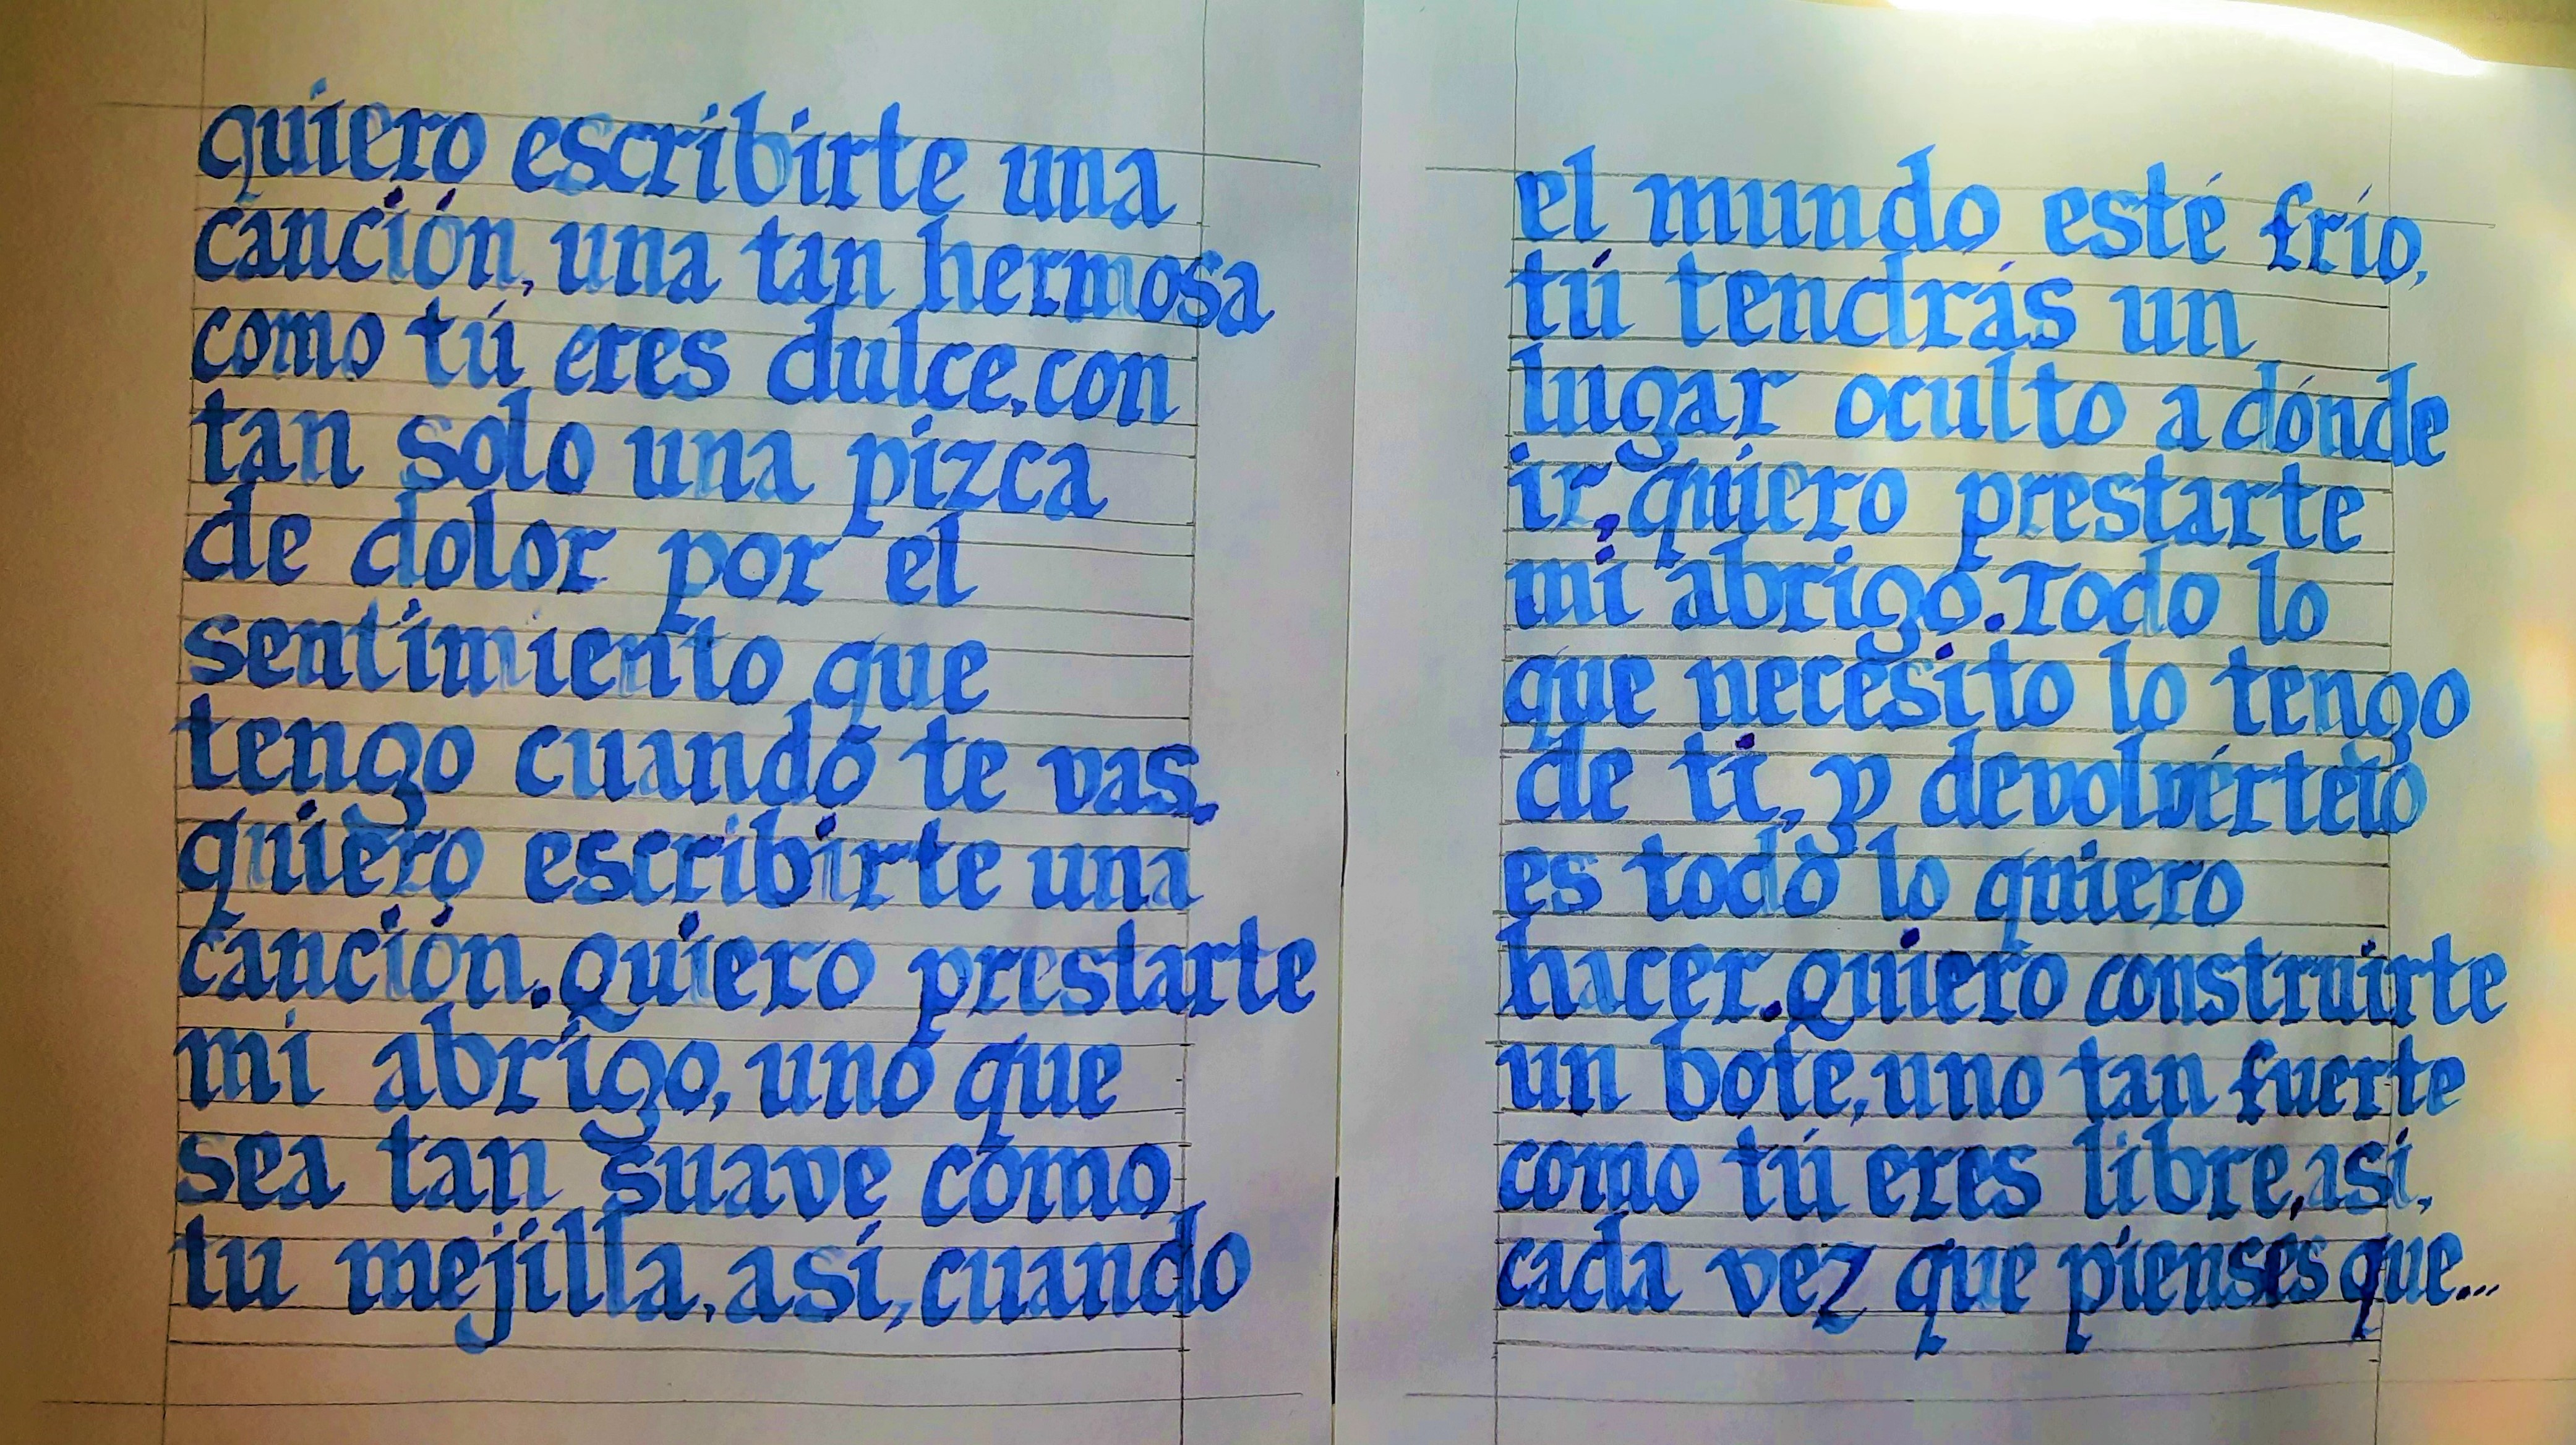 quiero escribirte una
canción, una tan hermosa
como tú eres dulce, con
tan solo una pizca
de dolor por el
sentimiento que
tengo cuando te vas.
quiero escribirte una
canción. Quiero prestarte
mi abrigo, uno que
sea tan suave como
tu mejilla, así, cuando
el mundo esté frío,
tú tendrás un
lugar oculto a dónde
ir, quiero prestarte
mi abrigo. Todo lo
que necesito lo tengo
de ti, y devolvértelo
es todo lo quiero
hacer. Quiero construirte
un bote, uno tan fuerte
como tú eres libre, así,
cada vez que pienses que...